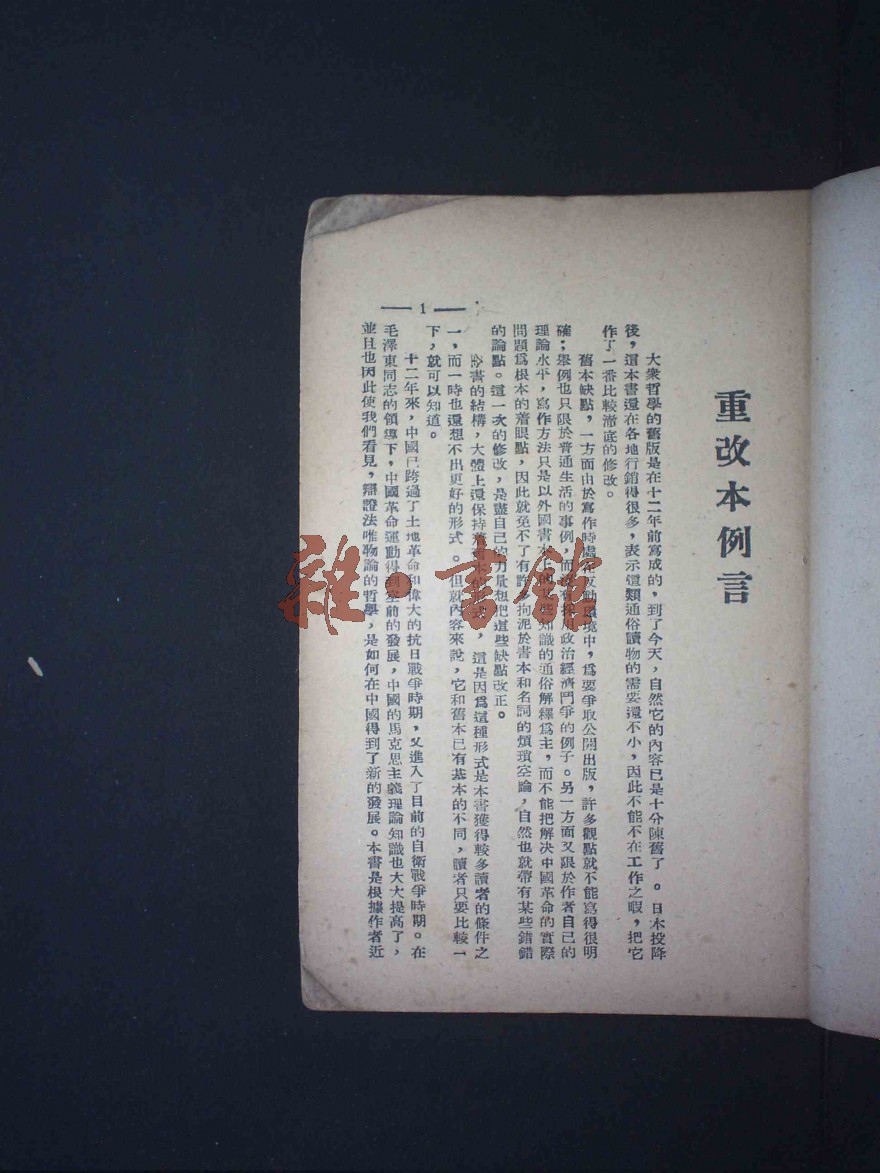 重改本例言
大衆哲學的舊版是在十二年前寫成的，到了今天，自然它的內容已是十分陳舊了。日本投降
後，這本書還在各地行銷得很多，表示這類通俗讀物的需要還不小，因此不能不在工作之暇，把它
作了一番比較澈底的修改。
舊本缺點，一方面由於寫作時處在反動環境中，爲要爭取公開出版，許多觀點就不能寫得很明
確；舉例也只限於普通生活的事例，而沒有採用政治經濟鬥爭的例子。另一方面又限於作者自己的
理論水平，寫作方法只是以外國書本上的某些知識的通俗解釋爲主，而不能把解決中國革命的實際
問題爲根本的着眼點，因此就免不了有許多拘泥於書本和名詞的煩瑣空論，自然也就帶有某些錯錯
的論點。這一次的修改，是盡自己的力量想把這些缺點改正。
書的結構，大體上還保持舊本的形式，這是因爲這種形式是本書獲得較多讀者的條件之
一，而一時也還想不出更好的形式。但就內容來說，它和舊本已有基本的不同，讀者只要比較一
下，就可以知道。
十二年來，中國已跨過了土地革命和偉大的抗日戰爭時期，又進入了目前的自衛戰爭時期。在
毛澤東同志的領導下，中國革命運動得到空前的發展，中國的馬克思主義理論知識也大大提高了，
並且也因此使我們看見，辯證法唯物論的哲學，是如何在中國得到了新的發展。本書是根據作者近
— 1 —
雜·書館